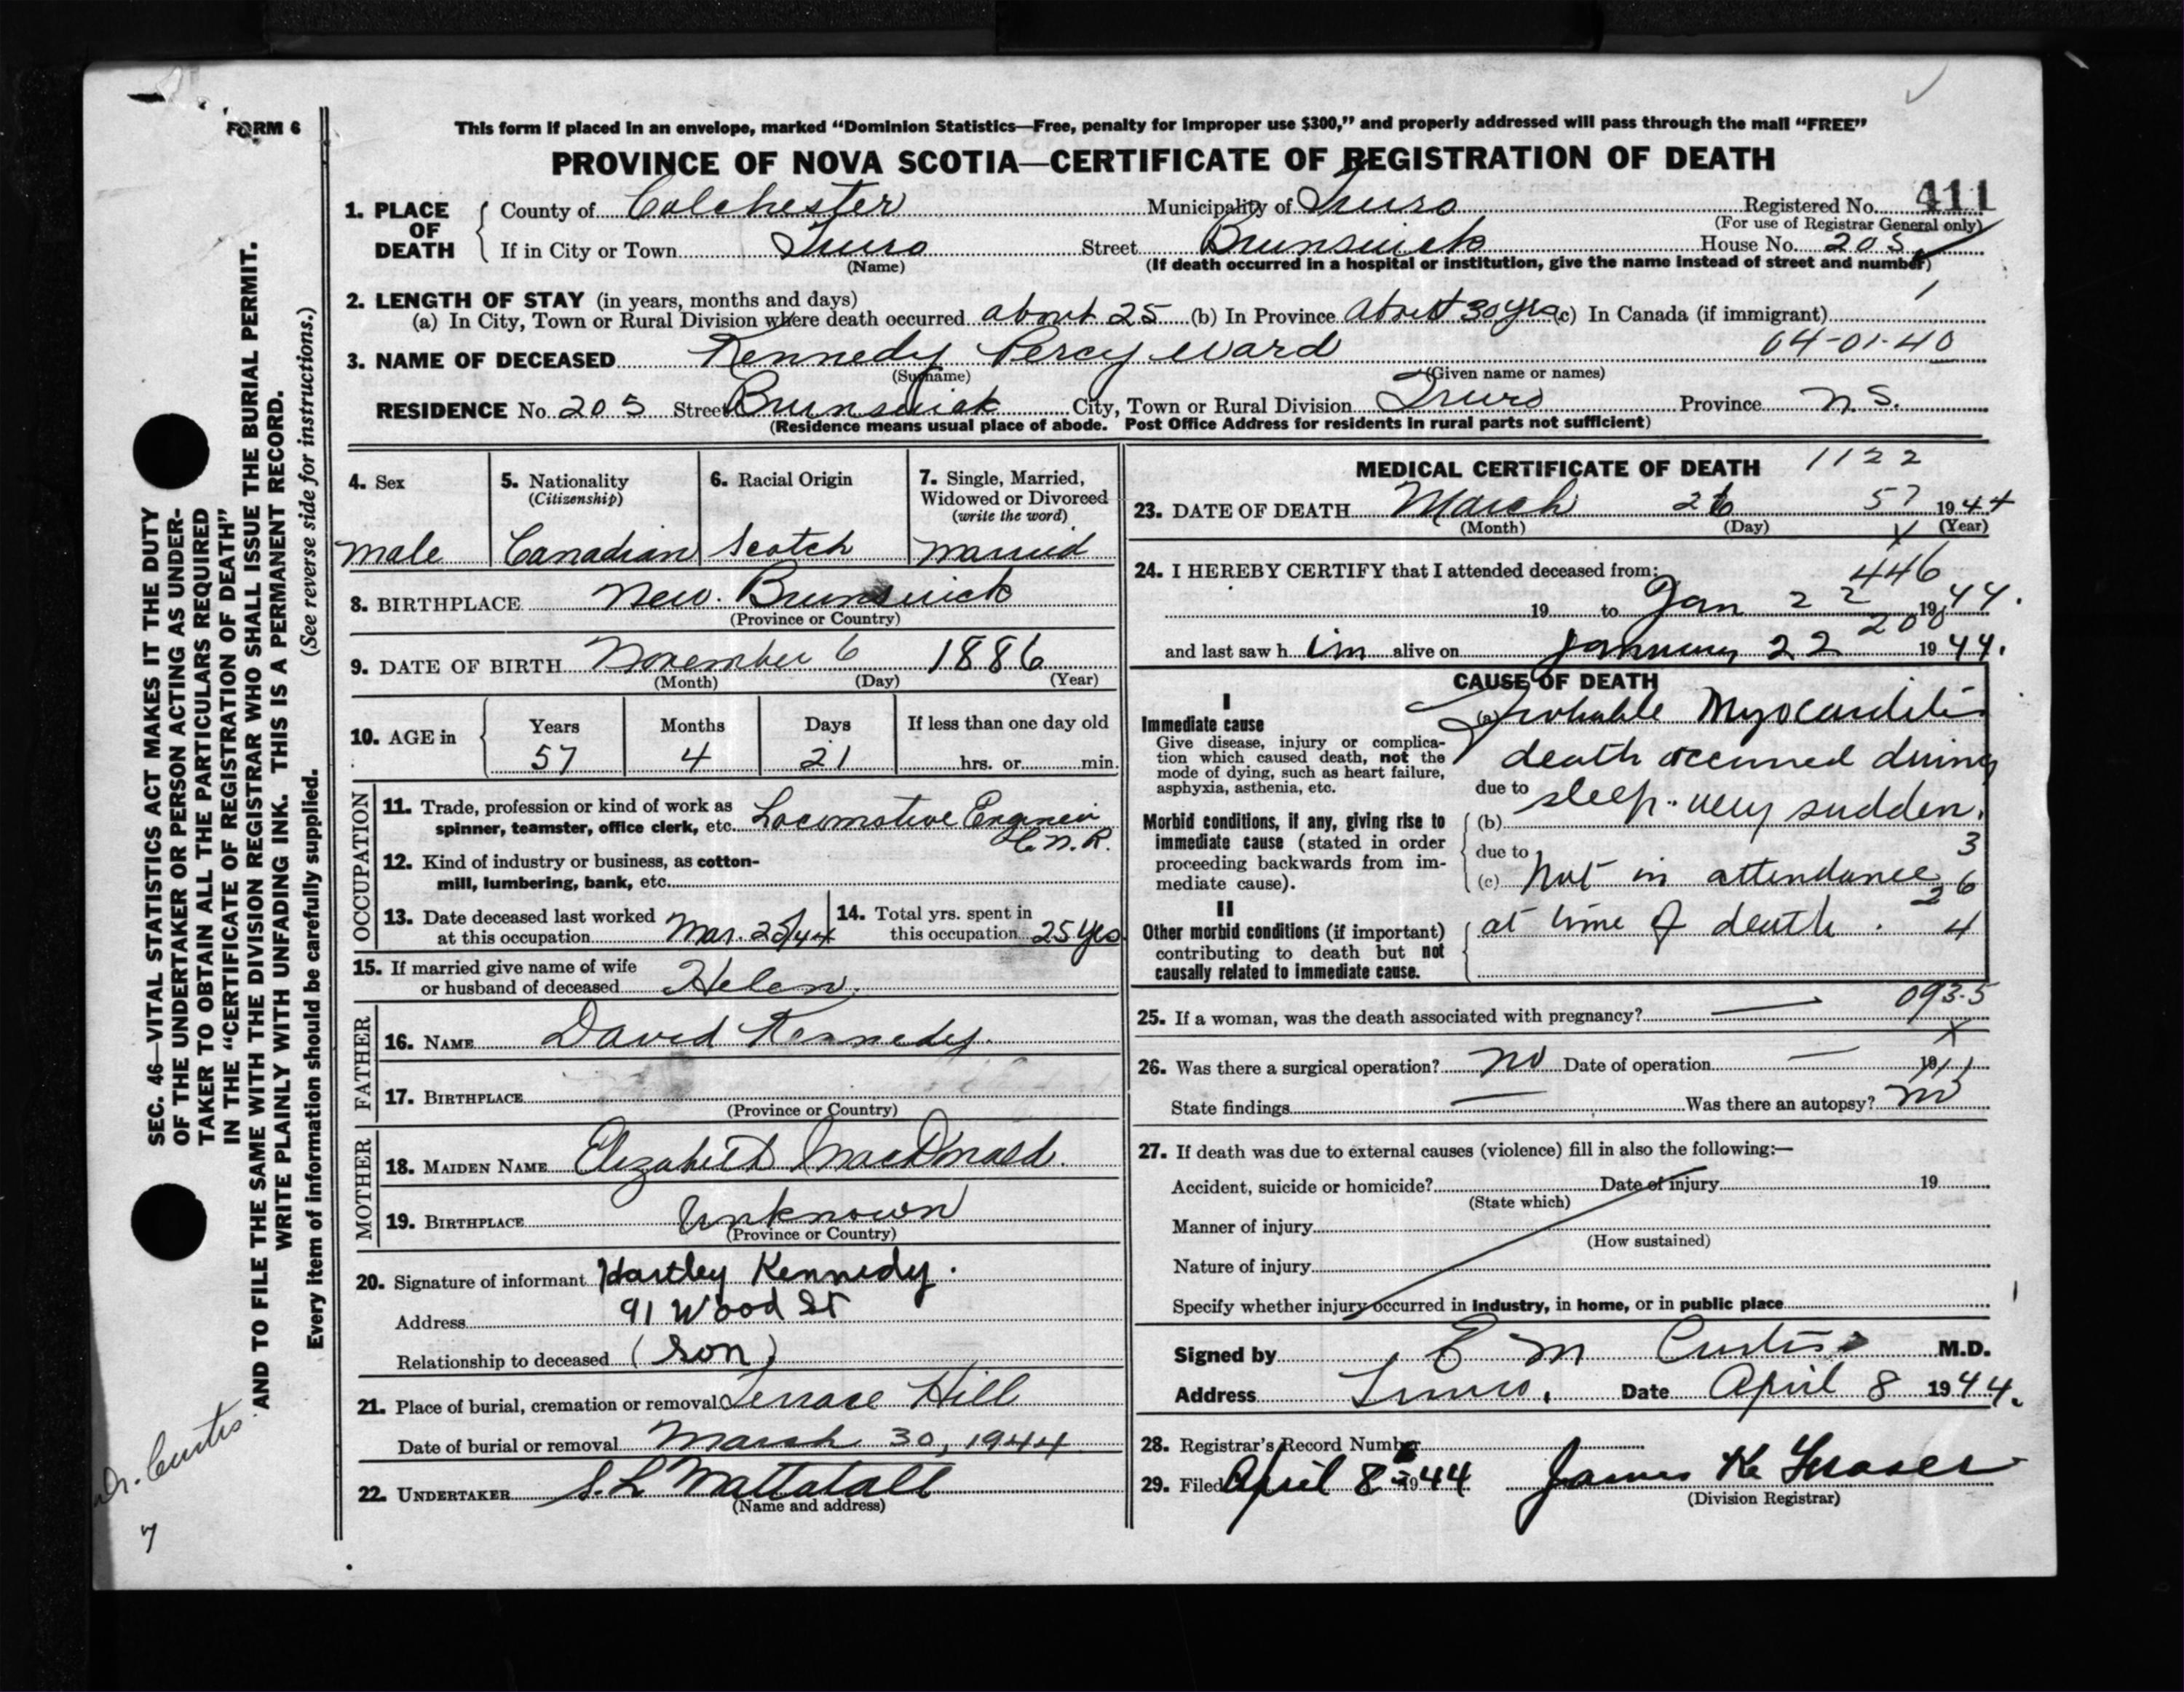 FORM 6
This form if placed in an envelope, marked “Dominion Statistics—Free, penalty for improper use $300,” and properly addressed will pass through the mail “FREE”
PROVINCE OF NOVA SCOTIA—CERTIFICATE OF REGISTRATION OF DEATH
1. PLACE OF DEATH
County of Colchester Municipality of Truro Registered No. 411
(For use of Registrar General only)
If in City or Town Truro Street Brunswick House No. 205
(Name) (If death occurred in a hospital or institution, give the name instead of street and number)
2. LENGTH OF STAY (in years, months and days)
(a) In City, Town or Rural Division where death occurred about 25 (b) In Province about 30 yrs (c) In Canada (if immigrant)
3. NAME OF DECEASED Kennedy Percy Ward 64-01-40
(Surname) (Given name or names)
RESIDENCE No. 205 Street Brunswick City, Town or Rural Division Truro Province N.S.
(Residence means usual place of abode. Post Office Address for residents in rural parts not sufficient)
4. Sex
male
5. Nationality
(Citizenship)
Canadian
6. Racial Origin
Scotch
7. Single, Married,
Widowed or Divorced
(write the word)
married
8. BIRTHPLACE New. Brunswick
(Province or Country)
9. DATE OF BIRTH November 6 1886
(Month) (Day) (Year)
10. AGE in
Years Months Days If less than one day old
57 4 21 hrs. or min.
OCCUPATION
11. Trade, profession or kind of work as
spinner, teamster, office clerk, etc. Locomotive Engineer
C.N.R.
12. Kind of industry or business, as cotton-
mill, lumbering, bank, etc.
13. Date deceased last worked
at this occupation Mar. 25/44
14. Total yrs. spent in
this occupation 25 yrs
15. If married give name of wife
or husband of deceased Helen.
FATHER
16. NAME David Kennedy.
17. BIRTHPLACE
(Province or Country)
MOTHER
18. MAIDEN NAME Elizabeth MacDonald.
19. BIRTHPLACE Unknown
(Province or Country)
20. Signature of informant Hartley Kennedy.
Address 91 Wood St
Relationship to deceased (son)
21. Place of burial, cremation or removal Terrace Hill
Date of burial or removal March 30, 1944
22. UNDERTAKER S.L Mattatall
(Name and address)
MEDICAL CERTIFICATE OF DEATH 1122
23. DATE OF DEATH March 26 57 1944
(Month) (Day) (Year)
X
24. I HEREBY CERTIFY that I attended deceased from:
446
19 to Jan 22 1944.
200
and last saw him alive on January 22 1944.
CAUSE OF DEATH
I
Immediate cause
Give disease, injury or complica-
tion which caused death, not the
mode of dying, such as heart failure,
asphyxia, asthenia, etc.
(a) Probable Myocarditis
death occurred during
due to sleep. very sudden.
Morbid conditions, if any, giving rise to
immediate cause (stated in order
proceeding backwards from im-
mediate cause).
(b)
due to 3
(c) Not in attendance 26
II
Other morbid conditions (if important)
contributing to death but not
causally related to immediate cause.
at time of death. 4
093.5
25. If a woman, was the death associated with pregnancy? —
X
26. Was there a surgical operation? no Date of operation — 19
State findings — Was there an autopsy? no
27. If death was due to external causes (violence) fill in also the following:—
Accident, suicide or homicide? Date of injury 19
(State which)
Manner of injury
(How sustained)
Nature of injury
Specify whether injury occurred in industry, in home, or in public place
Signed by E M Curtis M.D.
Address Truro. Date April 8 1944.
28. Registrar's Record Number
29. Filed April 8 1944 James K Fraser
(Division Registrar)
SEC. 46—VITAL STATISTICS ACT MAKES IT THE DUTY
OF THE UNDERTAKER OR PERSON ACTING AS UNDER-
TAKER TO OBTAIN ALL THE PARTICULARS REQUIRED
IN THE “CERTIFICATE OF REGISTRATION OF DEATH”
AND TO FILE THE SAME WITH THE DIVISION REGISTRAR WHO SHALL ISSUE THE BURIAL PERMIT.
WRITE PLAINLY WITH UNFADING INK. THIS IS A PERMANENT RECORD.
Every item of information should be carefully supplied. (See reverse side for instructions.)
Dr. Curtis
7